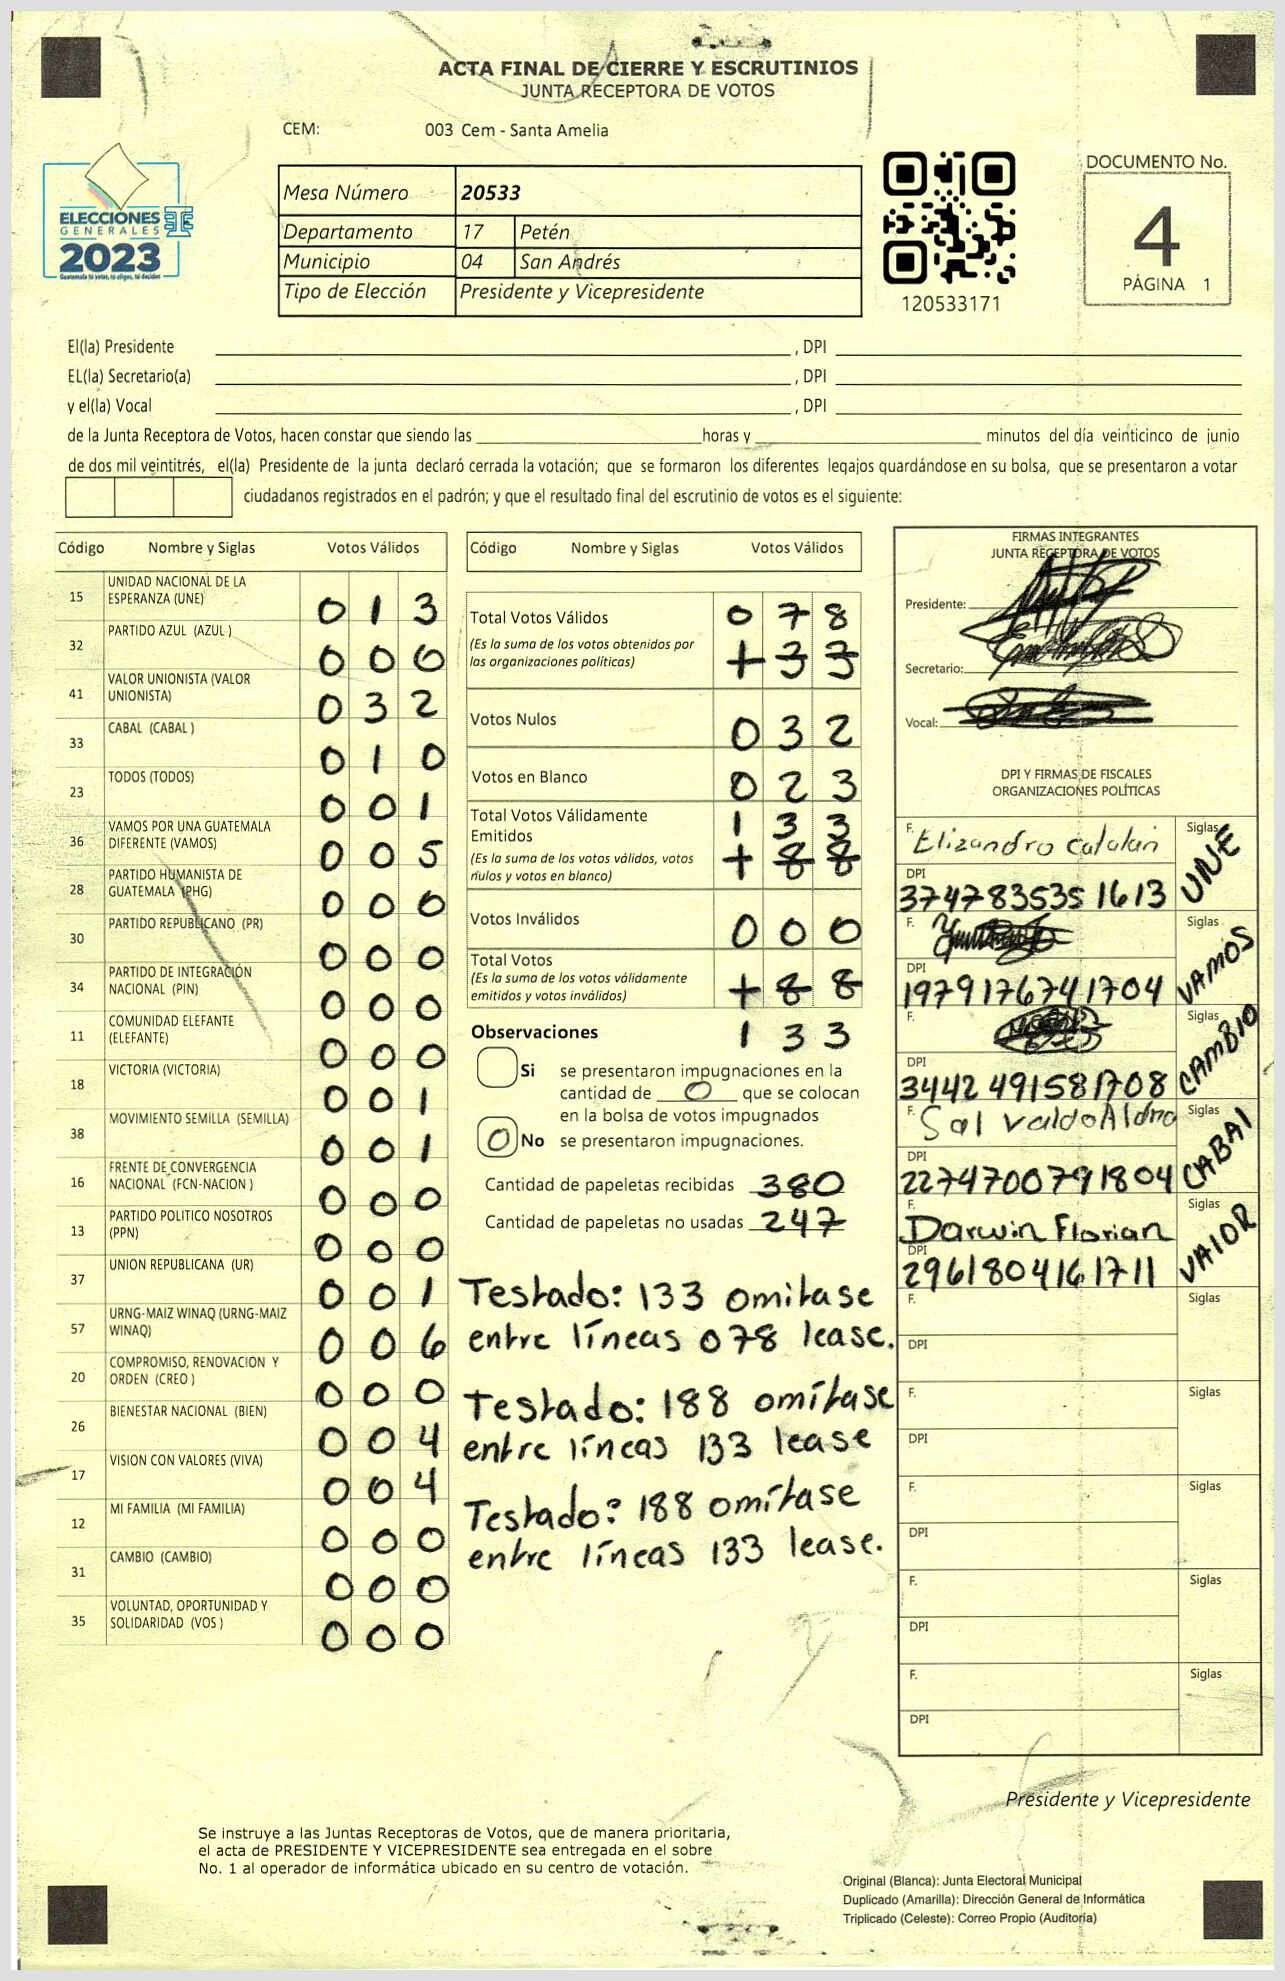 ACTA FINAL DE CIERRE Y ESCRUTINIOS
JUNTA RECEPTORA DE VOTOS
CEM: 003 Cem - Santa Amelia
ELECCIONES
GENERALES
2023
Guatemala tú votas, tú eliges, tú decides
Mesa Número 20533
Departamento 17 Petén
Municipio 04 San Andrés
Tipo de Elección Presidente y Vicepresidente
120533171
DOCUMENTO No.
4
PÁGINA 1
El(la) Presidente , DPI
EL(la) Secretario(a) , DPI
y el(la) Vocal , DPI
de la Junta Receptora de Votos, hacen constar que siendo las horas y minutos del día veinticinco de junio
de dos mil veintitrés, el(la) Presidente de la junta declaró cerrada la votación; que se formaron los diferentes legajos quardándose en su bolsa, que se presentaron a votar
ciudadanos registrados en el padrón; y que el resultado final del escrutinio de votos es el siguiente:
Código Nombre y Siglas Votos Válidos
15 UNIDAD NACIONAL DE LA
ESPERANZA (UNE) 013
32 PARTIDO AZUL (AZUL ) 000
41 VALOR UNIONISTA (VALOR
UNIONISTA) 032
33 CABAL (CABAL ) 010
23 TODOS (TODOS) 001
36 VAMOS POR UNA GUATEMALA
DIFERENTE (VAMOS) 005
28 PARTIDO HUMANISTA DE
GUATEMALA (PHG) 000
30 PARTIDO REPUBLICANO (PR) 000
34 PARTIDO DE INTEGRACIÓN
NACIONAL (PIN) 000
11 COMUNIDAD ELEFANTE
(ELEFANTE) 000
18 VICTORIA (VICTORIA) 001
38 MOVIMIENTO SEMILLA (SEMILLA) 001
16 FRENTE DE CONVERGENCIA
NACIONAL (FCN-NACION ) 000
13 PARTIDO POLITICO NOSOTROS
(PPN) 000
37 UNION REPUBLICANA (UR) 001
57 URNG-MAIZ WINAQ (URNG-MAIZ
WINAQ) 006
20 COMPROMISO, RENOVACION Y
ORDEN (CREO ) 000
26 BIENESTAR NACIONAL (BIEN) 004
17 VISION CON VALORES (VIVA) 004
12 MI FAMILIA (MI FAMILIA) 000
31 CAMBIO (CAMBIO) 000
35 VOLUNTAD, OPORTUNIDAD Y
SOLIDARIDAD (VOS ) 000
Código Nombre y Siglas Votos Válidos
Total Votos Válidos 078
(Es la suma de los votos obtenidos por
las organizaciones políticas) 133
Votos Nulos 032
Votos en Blanco 023
Total Votos Válidamente
Emitidos 133
(Es la suma de los votos válidos, votos
nulos y votos en blanco) 188
Votos Inválidos 000
Total Votos
(Es la suma de los votos válidamente
emitidos y votos inválidos) 188
Observaciones 133
Si se presentaron impugnaciones en la
cantidad de 0 que se colocan
en la bolsa de votos impugnados
0 No se presentaron impugnaciones.
Cantidad de papeletas recibidas 380
Cantidad de papeletas no usadas 247
Testado: 133 omitase
entre líneas 078 lease.
Testado: 188 omítase
entre líneas 133 lease
Testado: 188 omítase
entre líneas 133 lease.
FIRMAS INTEGRANTES
JUNTA RECEPTORA DE VOTOS
Presidente:
Secretario:
Vocal:
DPI Y FIRMAS DE FISCALES
ORGANIZACIONES POLÍTICAS
F. Elizandro Catalán Siglas UNE
DPI 3747835351613
F. Siglas VAMOS
DPI 1979176741704
F. Siglas CAMBIO
DPI 3442491581708
F. Siglas CABAl
DPI 2274700791804
F. Darwin Florian Siglas VAlOR
DPI 2961804161711
F. Siglas
DPI
F. Siglas
DPI
F. Siglas
DPI
F. Siglas
DPI
F. Siglas
DPI
Presidente y Vicepresidente
Se instruye a las Juntas Receptoras de Votos, que de manera prioritaria,
el acta de PRESIDENTE Y VICEPRESIDENTE sea entregada en el sobre
No. 1 al operador de informática ubicado en su centro de votación.
Original (Blanca): Junta Electoral Municipal
Duplicado (Amarilla): Dirección General de Informática
Triplicado (Celeste): Correo Propio (Auditoría)